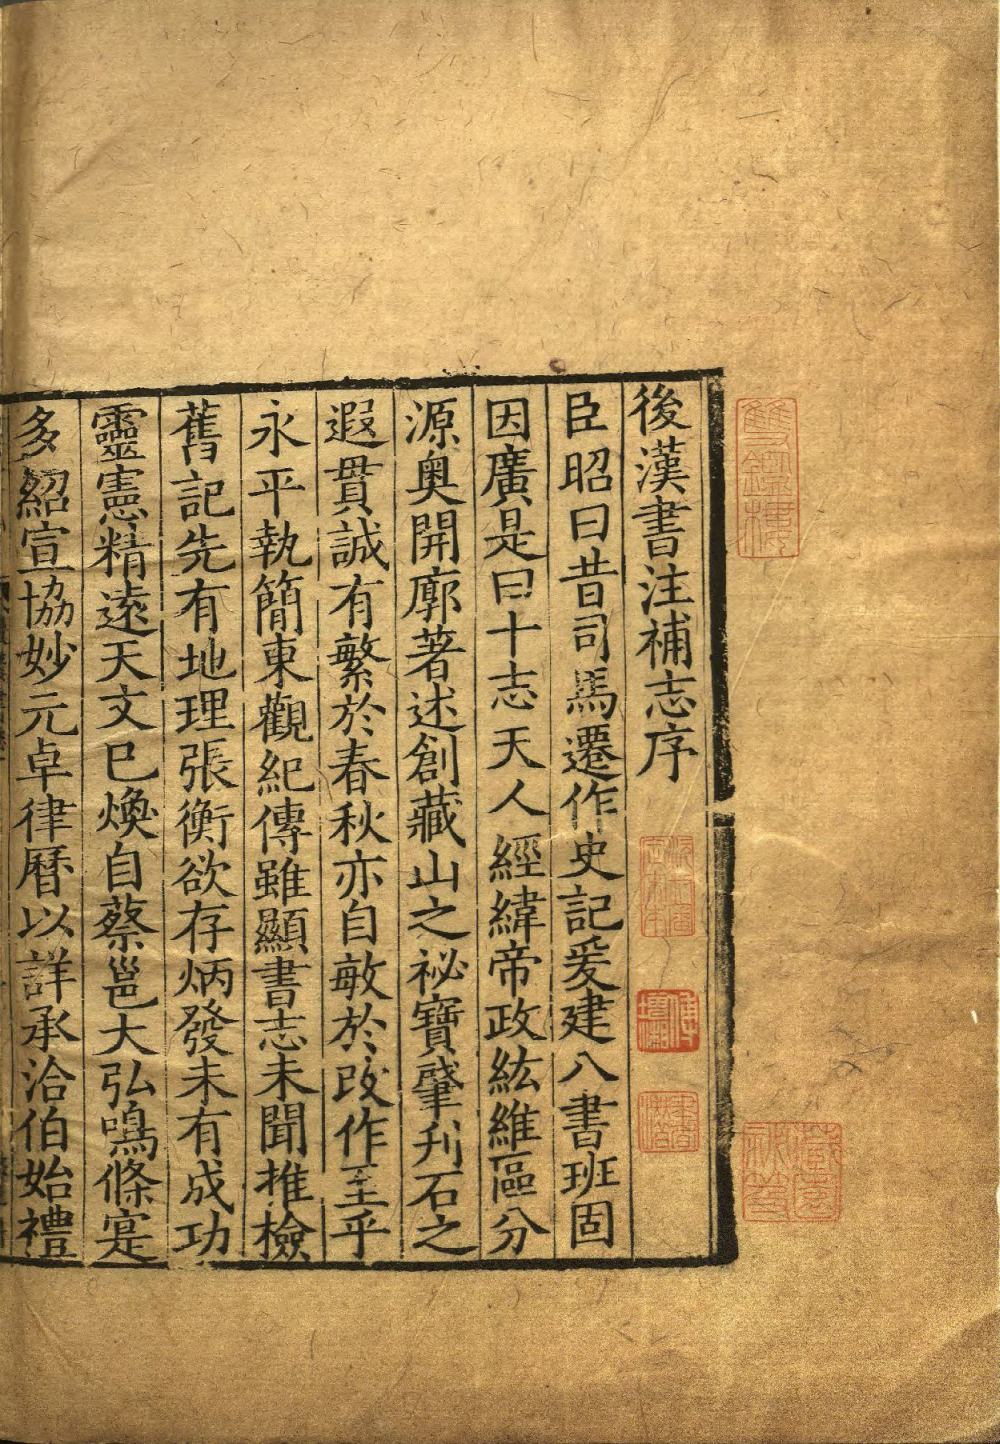 後漢書注補志序
臣昭曰昔司馬遷作史記爰建八書班固
因廣是曰十志天人經緯帝政紘維區分
源奧開廓著述創藏山之祕寶肇刋石之
遐貫誠有繁於春秋亦自敏於改作至乎
永平執簡東觀紀傳雖顯書志未聞推檢
舊記先有地理張衡欲存炳發未有成功
靈憲精遠天文巳煥自蔡邕大弘鳴條寔
多紹宣協妙元卓律曆以詳承洽伯始禮
雙鑑樓
藏園秘笈